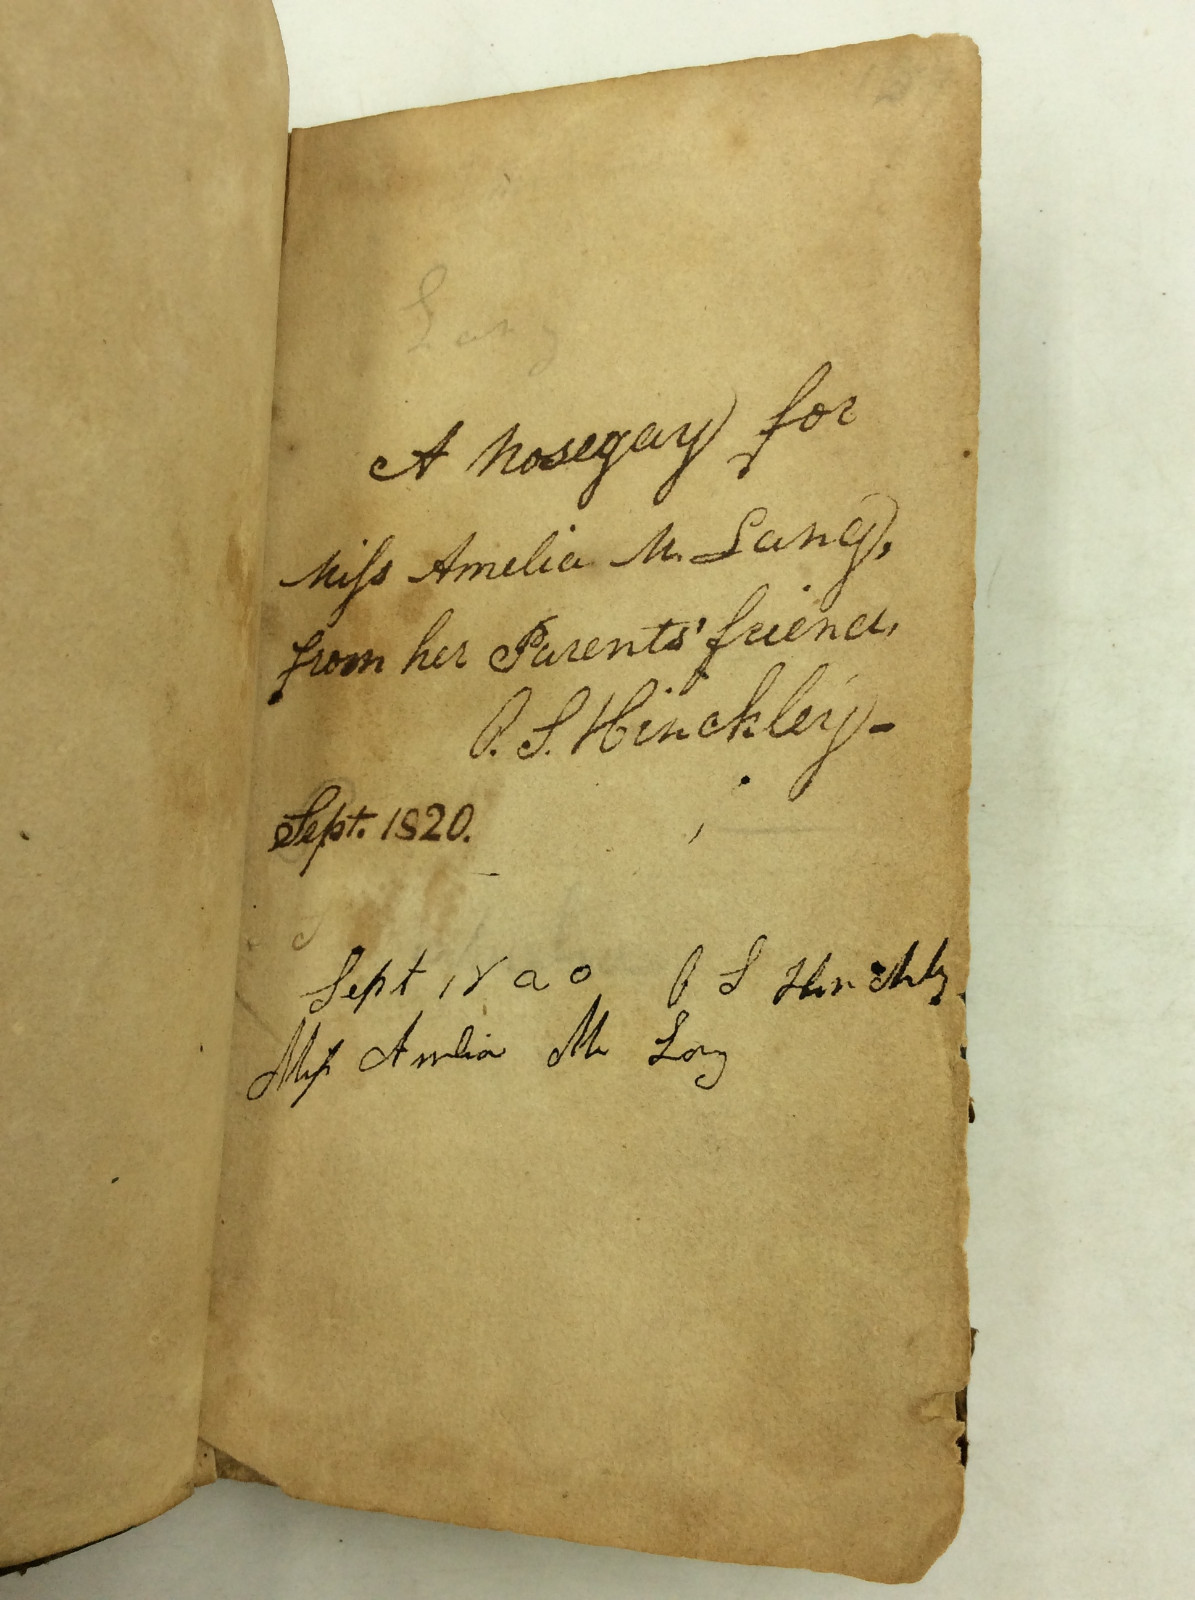 Lang
A Nosegay for
Miss Amelia M. Lang,
from her Parents' friend,
O. S. Hinckley-
Sept. 1820.
Sept 1820 O S Hinckly
Miss Amelia M Lang